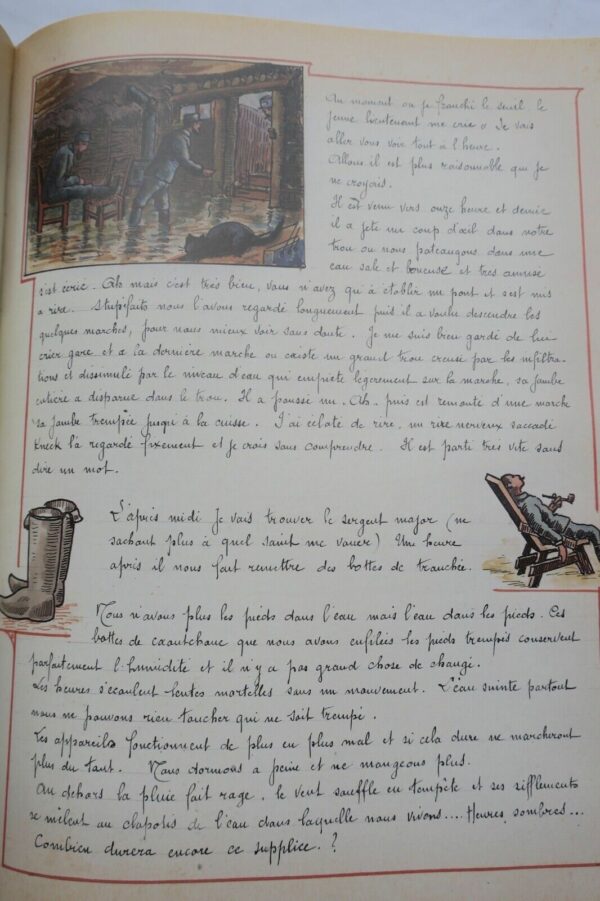 Au moment ou je franchi le seuil le
jeune lieutenant me crie « Je vais
aller vous voir tout à l'heure.
Allons il est plus raisonnable que je
ne croyais.
Il est venu vers onze heure et demie
il a jeté un coup d'œil dans notre
trou ou nous pataugeons dans une
eau sale et boueuse et tres amusé
s'est écrié. Ah mais c'est très bien, vous n'avez qu'à établir un pont et s'est mis
a rire. Stupéfaits nous l'avons regardé longuement puis il a voulu descendre les
quelques marches, pour nous mieux voir sans doute. Je me suis bien gardé de lui
crier gare et a la dernière marche ou existe un grand trou creusé par les infiltra-
tions et dissimulé par le niveau d'eau qui empiète légerement sur la marche, sa jambe
entière a disparue dans le trou. Il a poussé un. Ah. puis est remonté d'une marche
sa jambe trempée jusqu'à la cuisse. J'ai éclaté de rire, un rire nerveux saccadé
Kneck l'a regardé fixement et je crois sans comprendre. Il est parti très vite sans
dire un mot.
L'après midi Je vais trouver le sergent major (ne
sachant plus à quel saint me vouer) Une heure
après il nous fait remettre des bottes de tranchée.
Nous n'avons plus les pieds dans l'eau mais l'eau dans les pieds. Ces
bottes de caoutchouc que nous avons enfilées les pieds trempés conservent
parfaitement l'humidité et il n'y a pas grand chose de changé.
Les heures s'écoulent lentes mortelles sans un mouvement. L'eau suinte partout
nous ne pouvons rien toucher qui ne soit trempé.
Les appareils fonctionnent de plus en plus mal et si cela dure ne marcheront
plus du tout. Nous dormons a peine et ne mangeons plus.
Au dehors la pluie fait rage, le vent souffle en tempête et ses sifflements
se mêlent au clapotis de l'eau dans laquelle nous vivons.... Heures sombres...
Combien durera encore ce supplice. ?